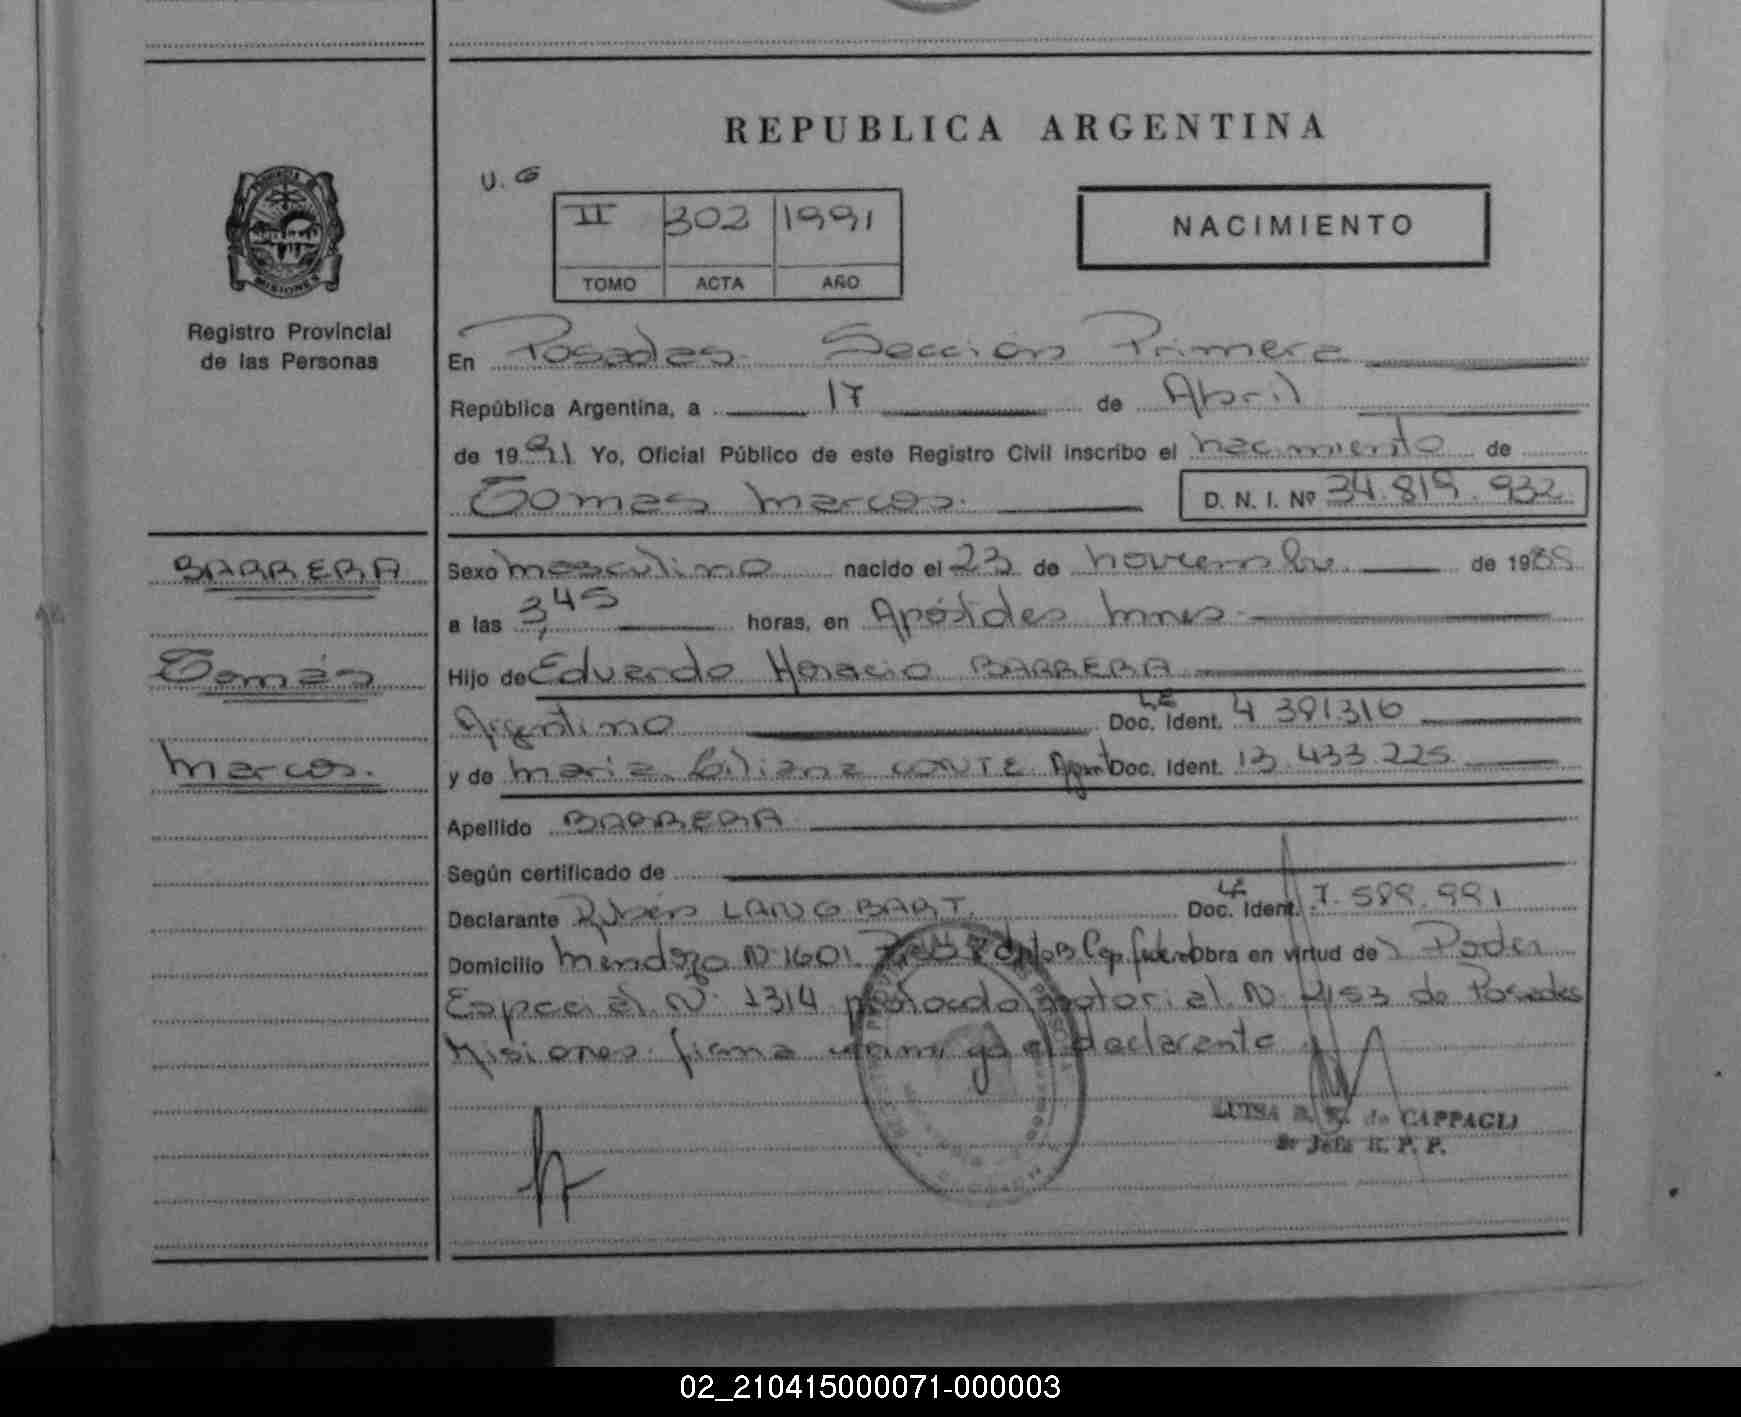 REPUBLICA ARGENTINA
U. G
II 302 1991
TOMO ACTA AÑO
NACIMIENTO
PROVINCIA
MISIONES
Registro Provincial
de las Personas
En Posadas. Sección Primera
República Argentina, a 17 de Abril
de 1991 Yo, Oficial Público de este Registro Civil inscribo el nacimiento de
Tomas Marcos. D. N. I. Nº 34.819.932
BARRERA
Tomás
Marcos.
Sexo masculino nacido el 23 de noviembre de 1989
a las 3,45 horas, en Apóstoles Mnes
Hijo de Eduardo Horacio BARRERA
Argentino LE Doc. Ident. 4 391316
y de Maria Liliana CONTE Argent Doc. Ident. 13.433.225
Apellido BARRERA
Según certificado de
Declarante Rubén LANGBART. Doc. Ident. 7.589.991
Domicilio Mendoza N 1601 Cap. Obra en virtud de Poder
Especial Nº 1314 notorial N de Posadas
Misiones. firma el declarente
LUISA de CAPPAGLI
Jefa R. P. P.
02_210415000071-000003